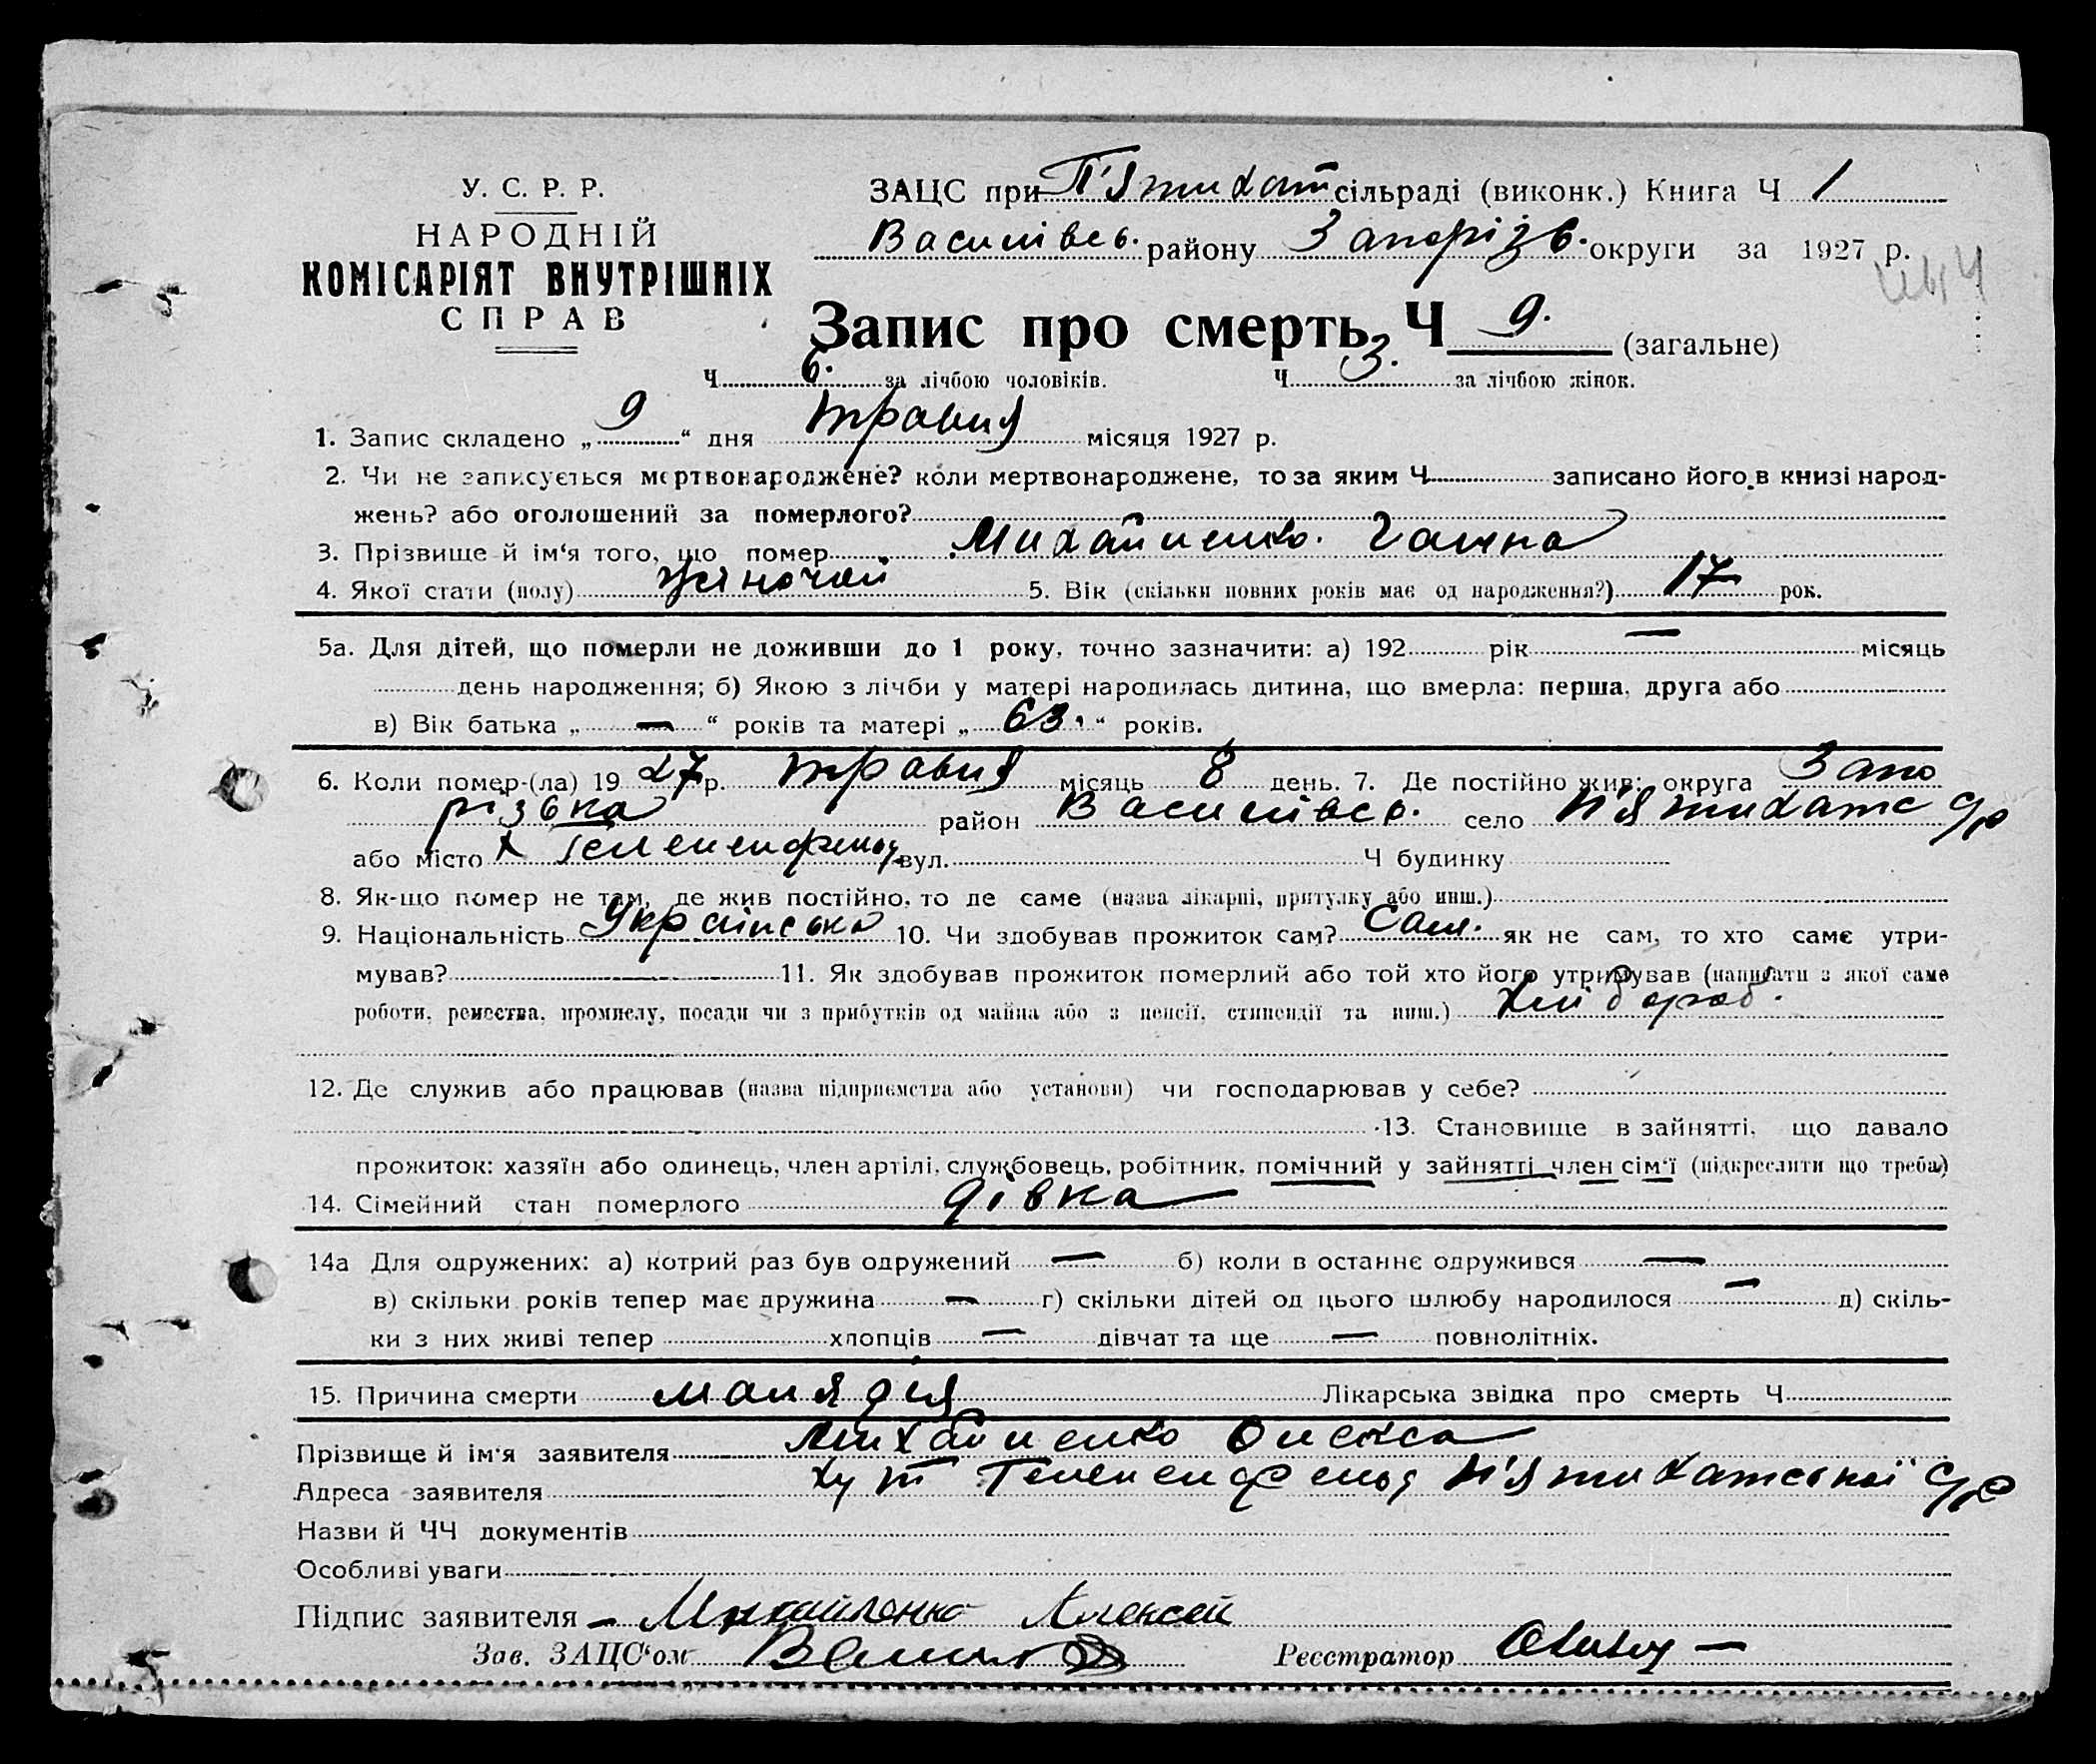 У. С. Р. Р.
НАРОДНІЙ
КОМІСАРІЯТ ВНУТРІШНІХ
СПРАВ
ЗАЦС при П'ятихат сільраді (виконк.) Книга Ч 1
Василівсь. району Запорізь. округи за 1927 р.
Запис про смерть Ч 9. (загальне)
Ч 6. за лічбою чоловіків. Ч 3. за лічбою жінок.
1. Запис складено „ 9 “ дня травня місяця 1927 р.
2. Чи не записується мертвонароджене? коли мертвонароджене, то за яким Ч записано його в книзі народ-
жень? або оголошений за померлого?
3. Прізвище й ім‘я того, що помер Михайленко Ганна
4. Якої стати (полу) жіночой 5. Вік (скільки повних років має од народження?) 17 рок.
5а. Для дітей, що померли не доживши до 1 року, точно зазначити: а) 192 рік — місяць
день народження; б) Якою з лічби у матері народилась дитина, що вмерла: перша, друга або
в) Вік батька „ — “ років та матері „ 63. “ років.
6. Коли помер-(ла) 19 27 р. травня місяць 8 день. 7. Де постійно жив: округа Запо
різька район Василівсь. село П'ятихатс с/р
або місто х вул. Ч будинку
8. Як-що помер не там, де жив постійно, то де саме (назва лікарні, притулку або инш.)
9. Національність Українська 10. Чи здобував прожиток сам? Сам. як не сам, то хто саме утри-
мував? 11. Як здобував прожиток померлий або той хто його утримував (написати з якої саме
роботи, ремества, промислу, посади чи з прибутків од майна або з пенсії, стипендії та инш.) хлібороб.
12. Де служив або працював (назва підприємства або установи) чи господарював у себе?
13. Становище в зайнятті, що давало
прожиток: хазяїн або одинець, член артілі, службовець, робітник, помічний у зайнятті член сім‘ї (підкреслити що треба)
14. Сімейний стан померлого дівка
14а Для одружених: а) котрий раз був одружений — б) коли в останнє одружився —
в) скільки років тепер має дружина — г) скільки дітей од цього шлюбу народилося — д) скіль-
ки з них живі тепер хлопців — дівчат та ще — повнолітніх.
15. Причина смерти малярія Лікарська звідка про смерть Ч
Прізвище й ім‘я заявителя Михайленко Олекса
Адреса заявителя хут П'ятихатської с/р
Назви й ЧЧ документів
Особливі уваги
Підпис заявителя — Михайленко Алексей
Зав. ЗАЦС‘ом Реєстратор